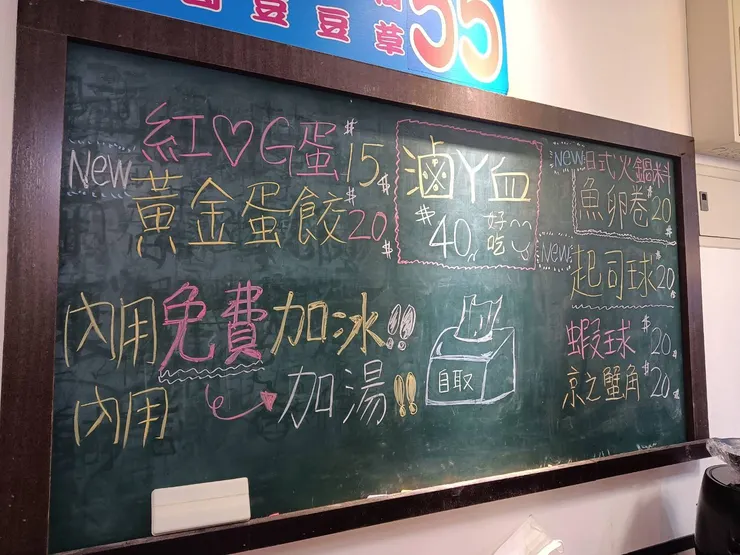 豆豆草 55
New 紅♡G蛋 $15
黃金蛋餃 $20
滷ㄚ血
$40 好吃
New 日式火鍋料
魚卵卷 $20
New 起司球 $20
蝦球 $20
京之蟹角 $20
內用免費加冰!!
內用 加湯!!
自取